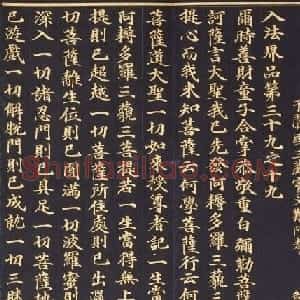 入法界品第三十九之九
爾時善財童子合掌恭敬重白彌勒菩薩
訶薩言大聖我已先發阿耨多羅三藐三
提心而我未知菩薩云何學菩薩行云何
菩薩道大聖一切如來授尊者記一生當
阿耨多羅三藐三菩提若一生當得無上
提則已超越一切菩薩所住處則已出過
切菩薩離生位則已圓滿一切波羅蜜則
深入一切諸忍門則已具足一切菩薩地
已遊戲一切解脫門則已成就一切三昧